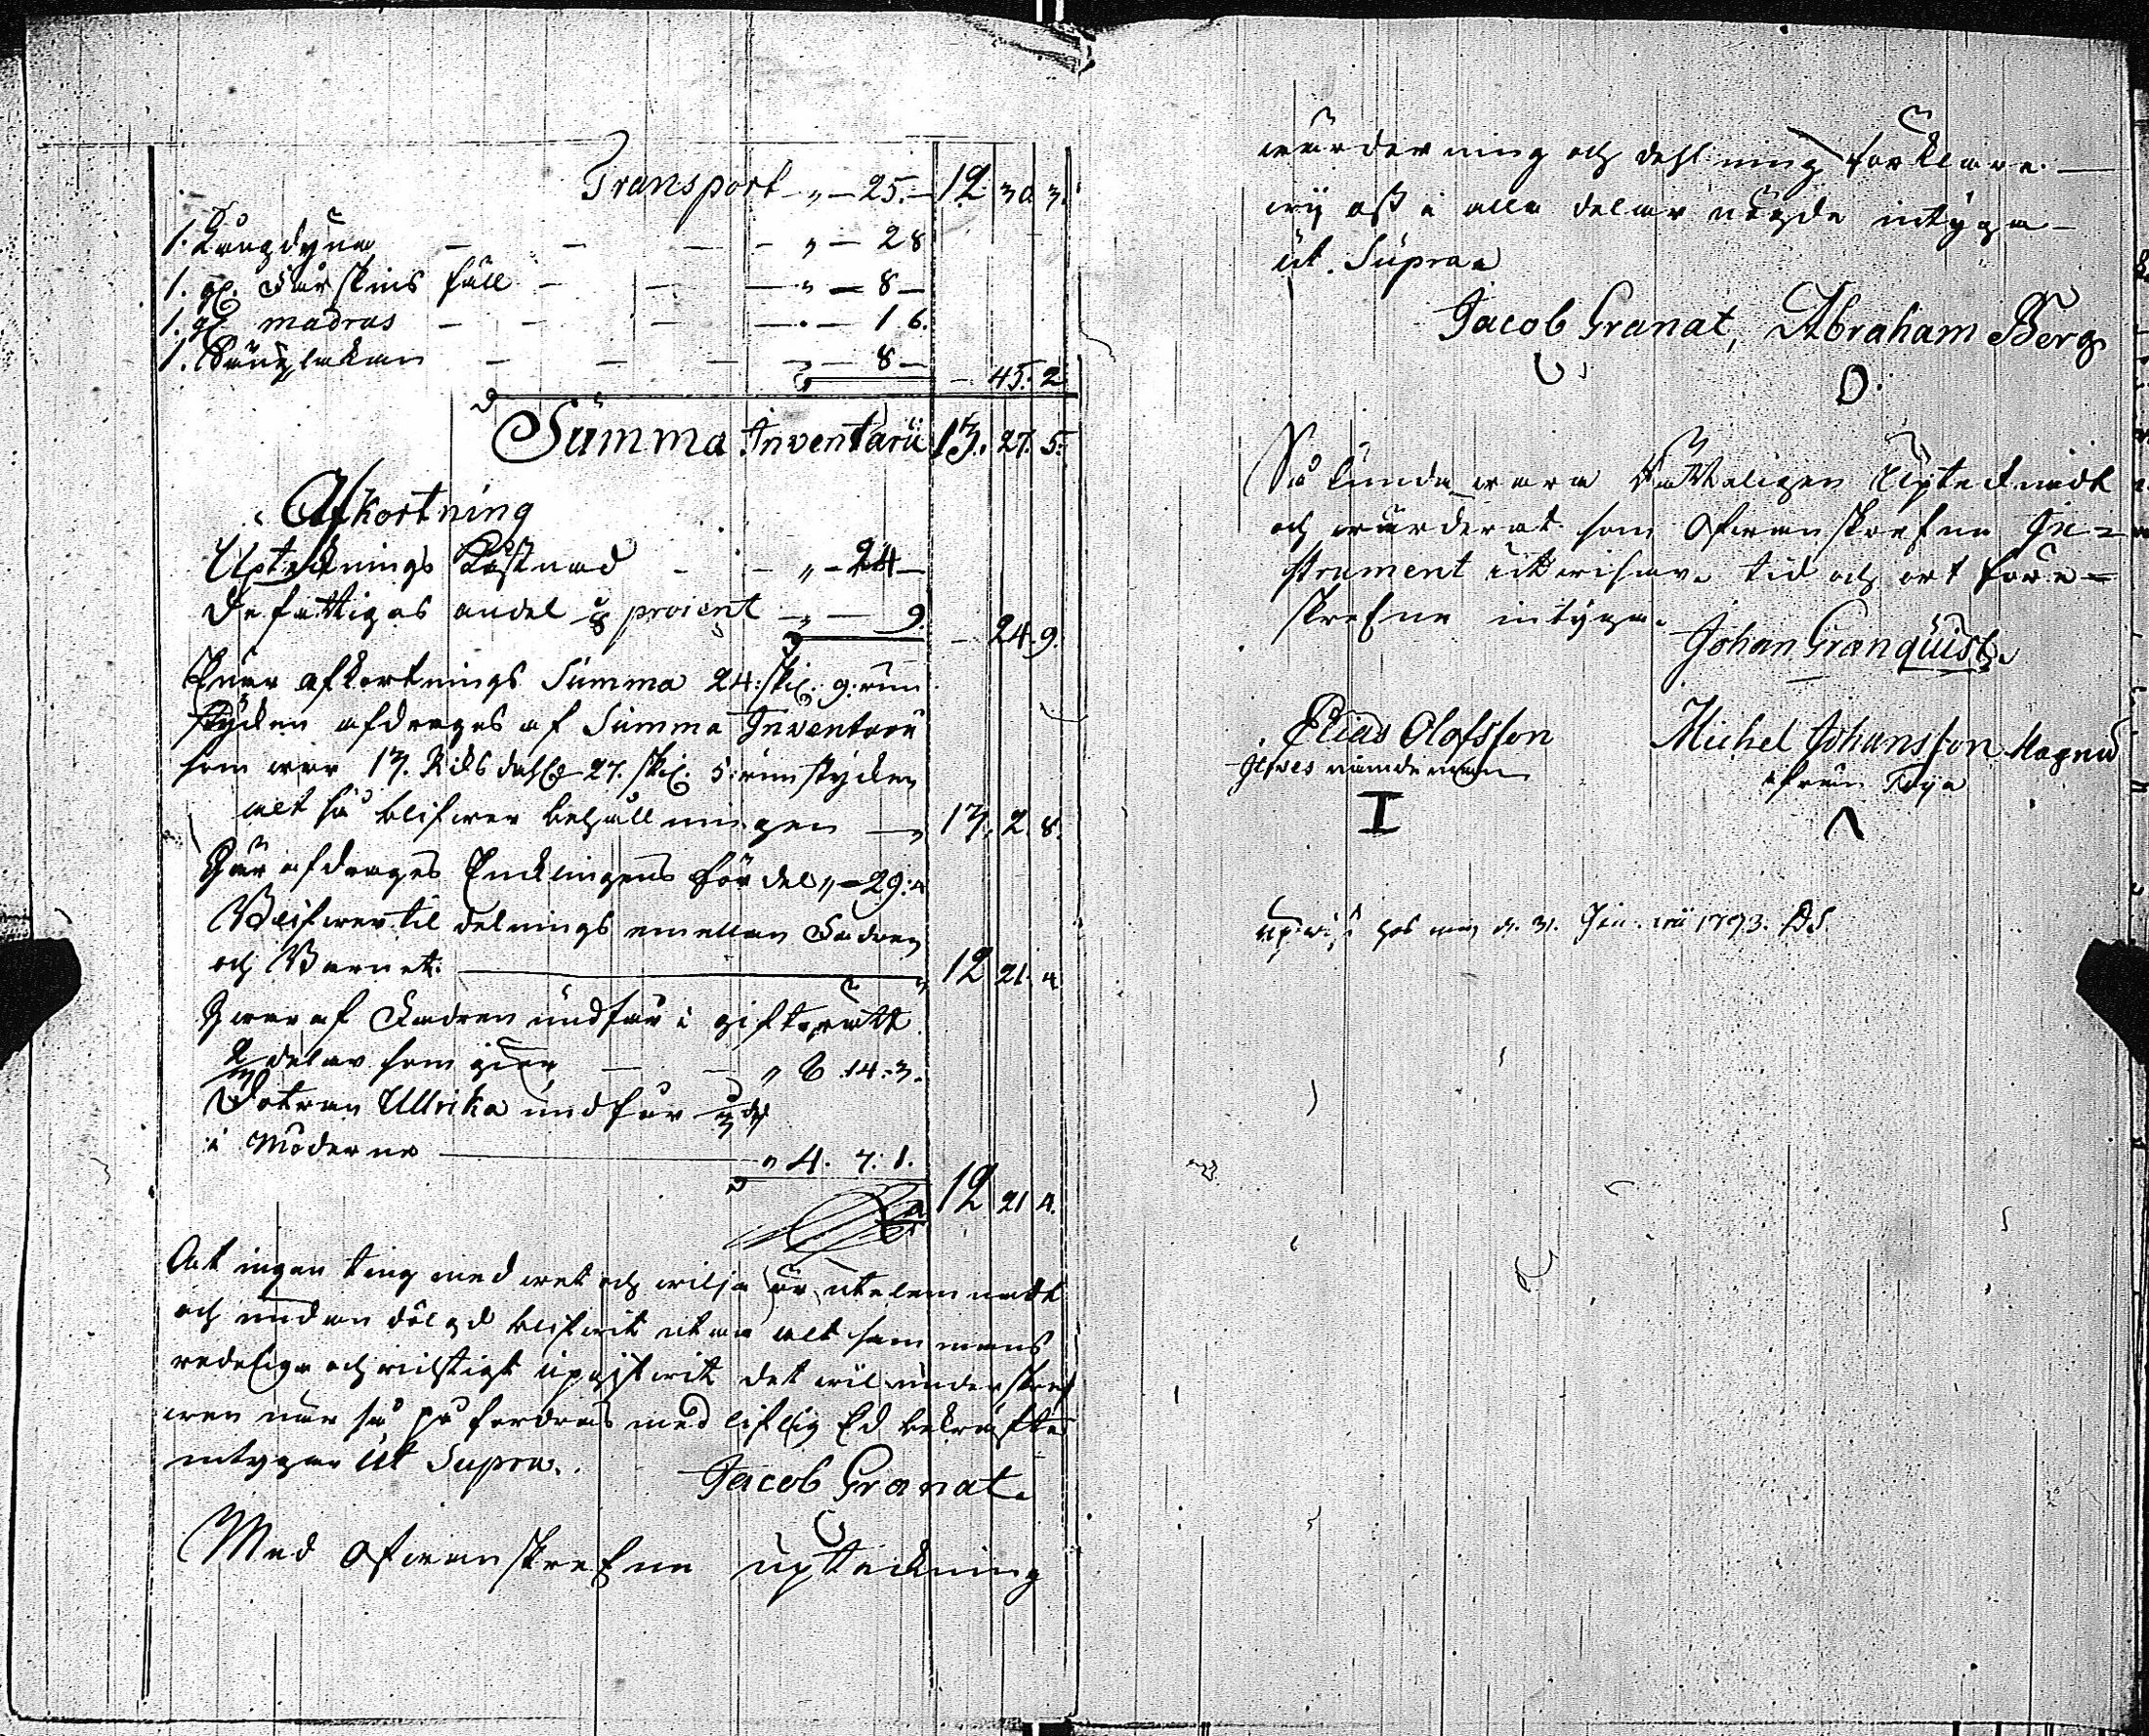 Transport „ — 25. — 12. 30. 3.
1. Långdyna — — — „ — 28
1. gl. Fårskins fäll — — „ — 8 —
1. gl. madras — — — „ — 16.
1. Sänglakan — — — „ — 8 — — 45. 2.
Summa Inventarii 13. 27. 5.
Afkortning
Uptecknings Kostnad — — „ — 24 —
De fattigas andel 1/8 procent „ — 9. — 24. 9.
afkortnings Summa 24: skil. 9. run
stycken afdrages af Summa Inventarii
som war 13. Riksdahler 27. skil. 5: runstycken
alt så blifwer behållningen — „ 13. 2. 8.
Här afdrages Encklingens fördel „ — 29: 4
Blifwer til delnings emellan Fadren
och Barnet. — 12 21. 4.
Hwar af Fadren undfår i giftorätt
2/3 delar som giör — — „ 8 14: 3.
Dotren Ullrika undfår 1/3 del
i Möderne — „ 4. 7: 1. 12 21 4.
At ingen ting med wet och wilja är utelemnadt
och undan dölgd blifwit utan alt sammans
redeligen och richtigt upgifwit det wil underskref
wen när så på fordras med liflig Ed bekräfta
intygar Ut Supra.
Jacob Granat.
Med ofwanskrefne upteckning
wärdering och dehlning förklare
wij oss i alla delar nögde intyga
ut Supra
Jacob Granat, Abraham Berg
Så kunda wara Rätteligen Uptecknadt
och wärderat som Ofwanskrefne In=
strument utwisar. tid och ort före=
skrefne intyga.
Johan Granquist.
Elias Olofsson Michel Johansson Magnus
nämdeman ifrån
I Λ
hos mig d. 31. 1793.